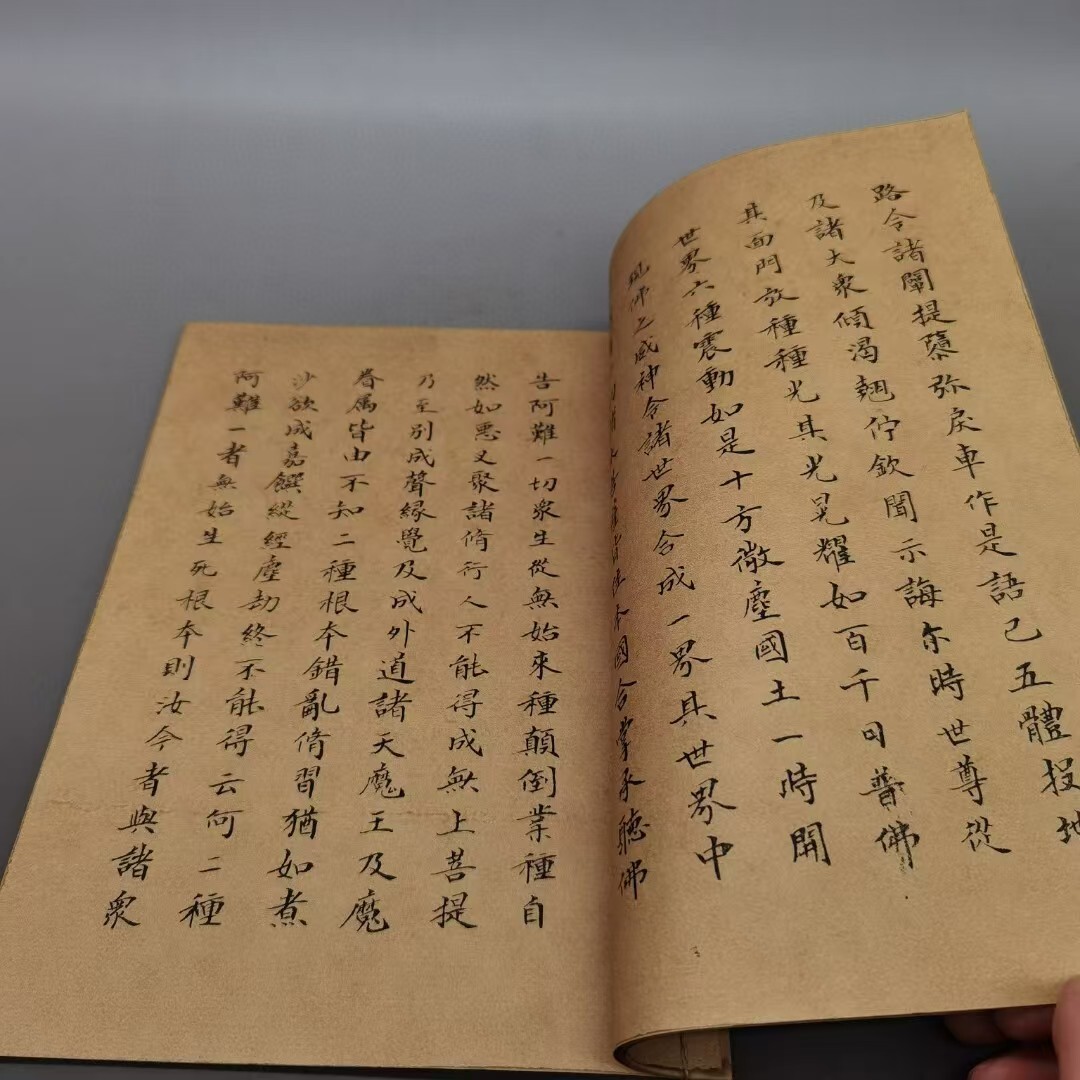 路令諸闡提隳弥戾車作是語已五體投地
及諸大衆傾渴翹佇欽聞示誨尓時世尊從
其面門放種種光其光晃耀如百千日普佛
世界六種震動如是十方微塵國土一時開
現佛之威神令諸世界合成一界其世界中
皆住本國合掌承聽佛
告阿難一切衆生從無始來種顛倒業種自
然如惡叉聚諸脩行人不能得成無上菩提
乃至別成聲縁覺及成外道諸天魔王及魔
眷属皆由不知二種根本錯亂脩習猶如煮
沙欲成嘉饌縱經塵劫終不能得云何二種
阿難一者無始生死根本則汝今者與諸衆